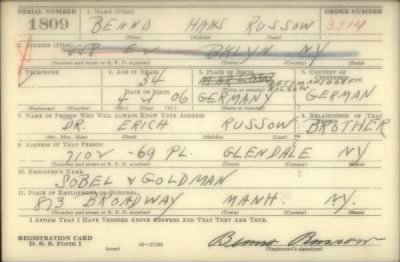 SERIAL NUMBER 1. NAME (Print) ORDER NUMBER
1809 BENNO HANS RUSSOW 3314
(First) (Middle) (Last)
2. ADDRESS (Print)
BKLYN NY
(Number and street or R. F. D. number) (Town) (County) (State)
3. TELEPHONE 4. AGE IN YEARS 5. PLACE OF BIRTH 6. COUNTRY OF CITIZENSHIP
34
DATE OF BIRTH
06 GERMANY GERMAN
(Exchange) (Number) (Mo.) (Day) (Yr.) (State or country)
7. NAME OF PERSON WHO WILL ALWAYS KNOW YOUR ADDRESS 8. RELATIONSHIP OF THAT PERSON
DR. ERICH RUSSOW BROTHER
(Mr., Mrs., Miss) (First) (Middle) (Last)
9. ADDRESS OF THAT PERSON
7102 - 69 PL. GLENDALE NY.
(Number and street or R. F. D. number) (Town) (County) (State)
10. EMPLOYER'S NAME
SOBEL & GOLDMAN
11. PLACE OF EMPLOYMENT OR BUSINESS
873 BROADWAY MANH. NY.
(Number and street or R. F. D. number) (Town) (County) (State)
I AFFIRM THAT I HAVE VERIFIED ABOVE ANSWERS AND THAT THEY ARE TRUE.
REGISTRATION CARD
D. S. S. Form 1 Benno Russow
(Registrant's signature)